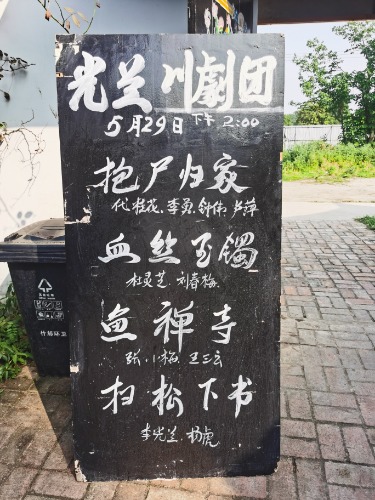 光兰川劇团
5月29日 下午 2:00
抱尸归家
代桂花、李勇、舒伟、卢萍
血丝玉镯
杜灵芝、刘春梅、
鱼禅寺
张小梅、王三云
扫松下书
李光兰、杨虎
竹丽环卫